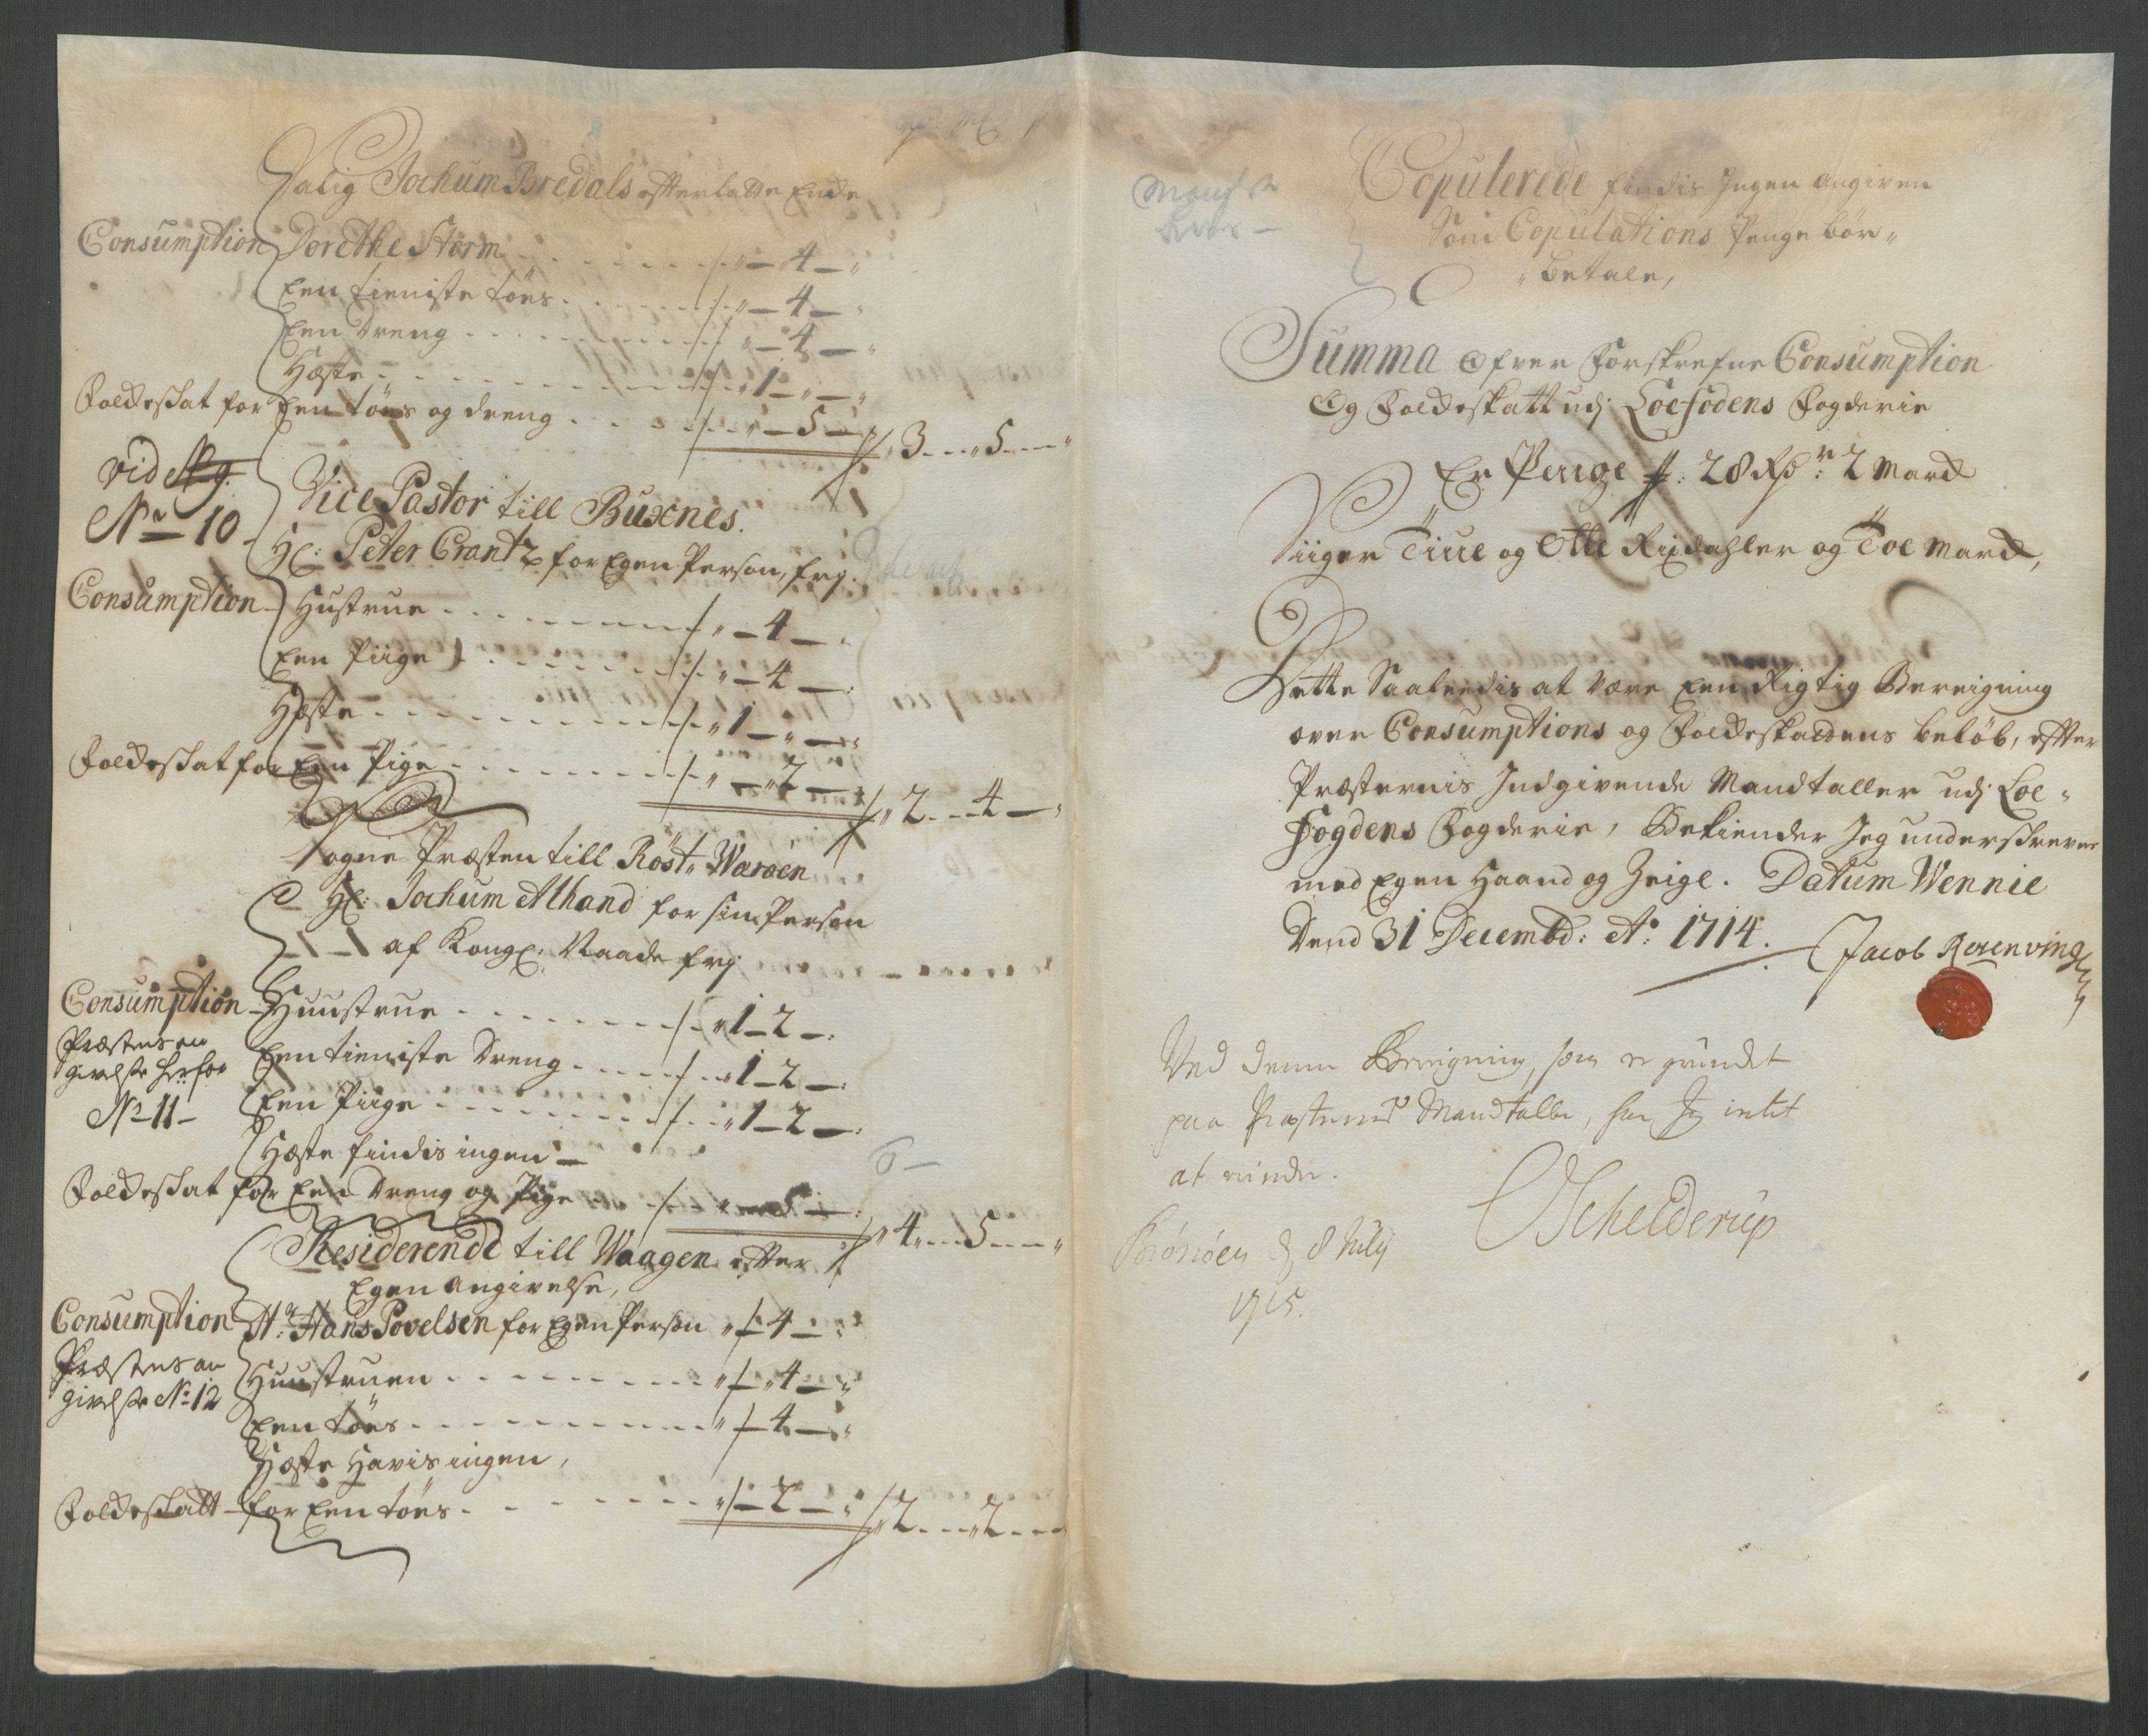 Salig Jochum Bredals efterlatte Encke
Consumption Dorethe Storm - - - „ - 4 - „
Een tieniste töes - - - „ - 4 - „
Een Dreng - - - „ - 4 - „
Hæste - - - „ 1 - „ - „
Foldeschat for Een töes og dreng - - - „ - 5 - „ 3 - - „ 5 - - „
vid No 9.
No 10
Vice Pastor till Buxnes.
Hr: Peter Crantz for Egen Person, frj.
Consumption Hustrue - - - „ - 4 - „
Een Piige - - - „ - 4 - „
Hæste - - - „ 1 - „ - „
Foldeschat for Een Pige - - - „ - „ 2 - „ 2 - - 4 - „
Sogne Præsten till Röst „ Waröen
Hr: Jochum Alhand for sin Person
af Kongl: Naade frj
Consumption Huustrue - - - „ 1 - 2 - „
Præstens an
givelse her for
No 11 -
Een tieniste Dreng - - - „ 1 - 2 - „
Een Piige - - - „ 1 - 2 - „
Hæste findis ingen -
6 -
Foldeschat for Een Dreng og Pige - - „ - 5 - „ 4 „ - - 5 - - „
Residerende till Waagen efter
Egen Angivelse,
Consumption Hr: Hans Povelsen for Egen Person „ - 4 - „
Præstens an
givelse No 12
Huustruen - - - „ - „ 4 - „
Een töes - - - „ - 4 - „
Hæste Havis ingen,
Foldeschatt for Een töes - - - „ - 2 - „ 2 - - „ 2 - - -
Copulerede findis Ingen angiven
Som Copulations Penge bör „
„ betale,
Summa Ofver Forskrefne Consumption
Og Foldeskatt udj Loefodens Fogderie
Er Penge 28 Rdr: 2 Marck
Siiger Tiue og Otte Rixdahler og Toe Marck,
Dette Saaledis at være Een Rigtig Bereigning
over Consumptions og Foldeskattens beløb, effter
Præsternis Indgivende Mandtaller udj Loe „
Fogdens Fogderie, Bekiender Jeg underschreven
med Egen Haand og Zeigl. Datum Wennie
Dend 31 Decembr: Ao: 1714.
Jacob Rosenving
Ved denne Bereigning, som er grundet
paa Præsternes Mandtalle, har Jeg intet
at erindre.
Brönöen d 8 July
1715.
Schelderup